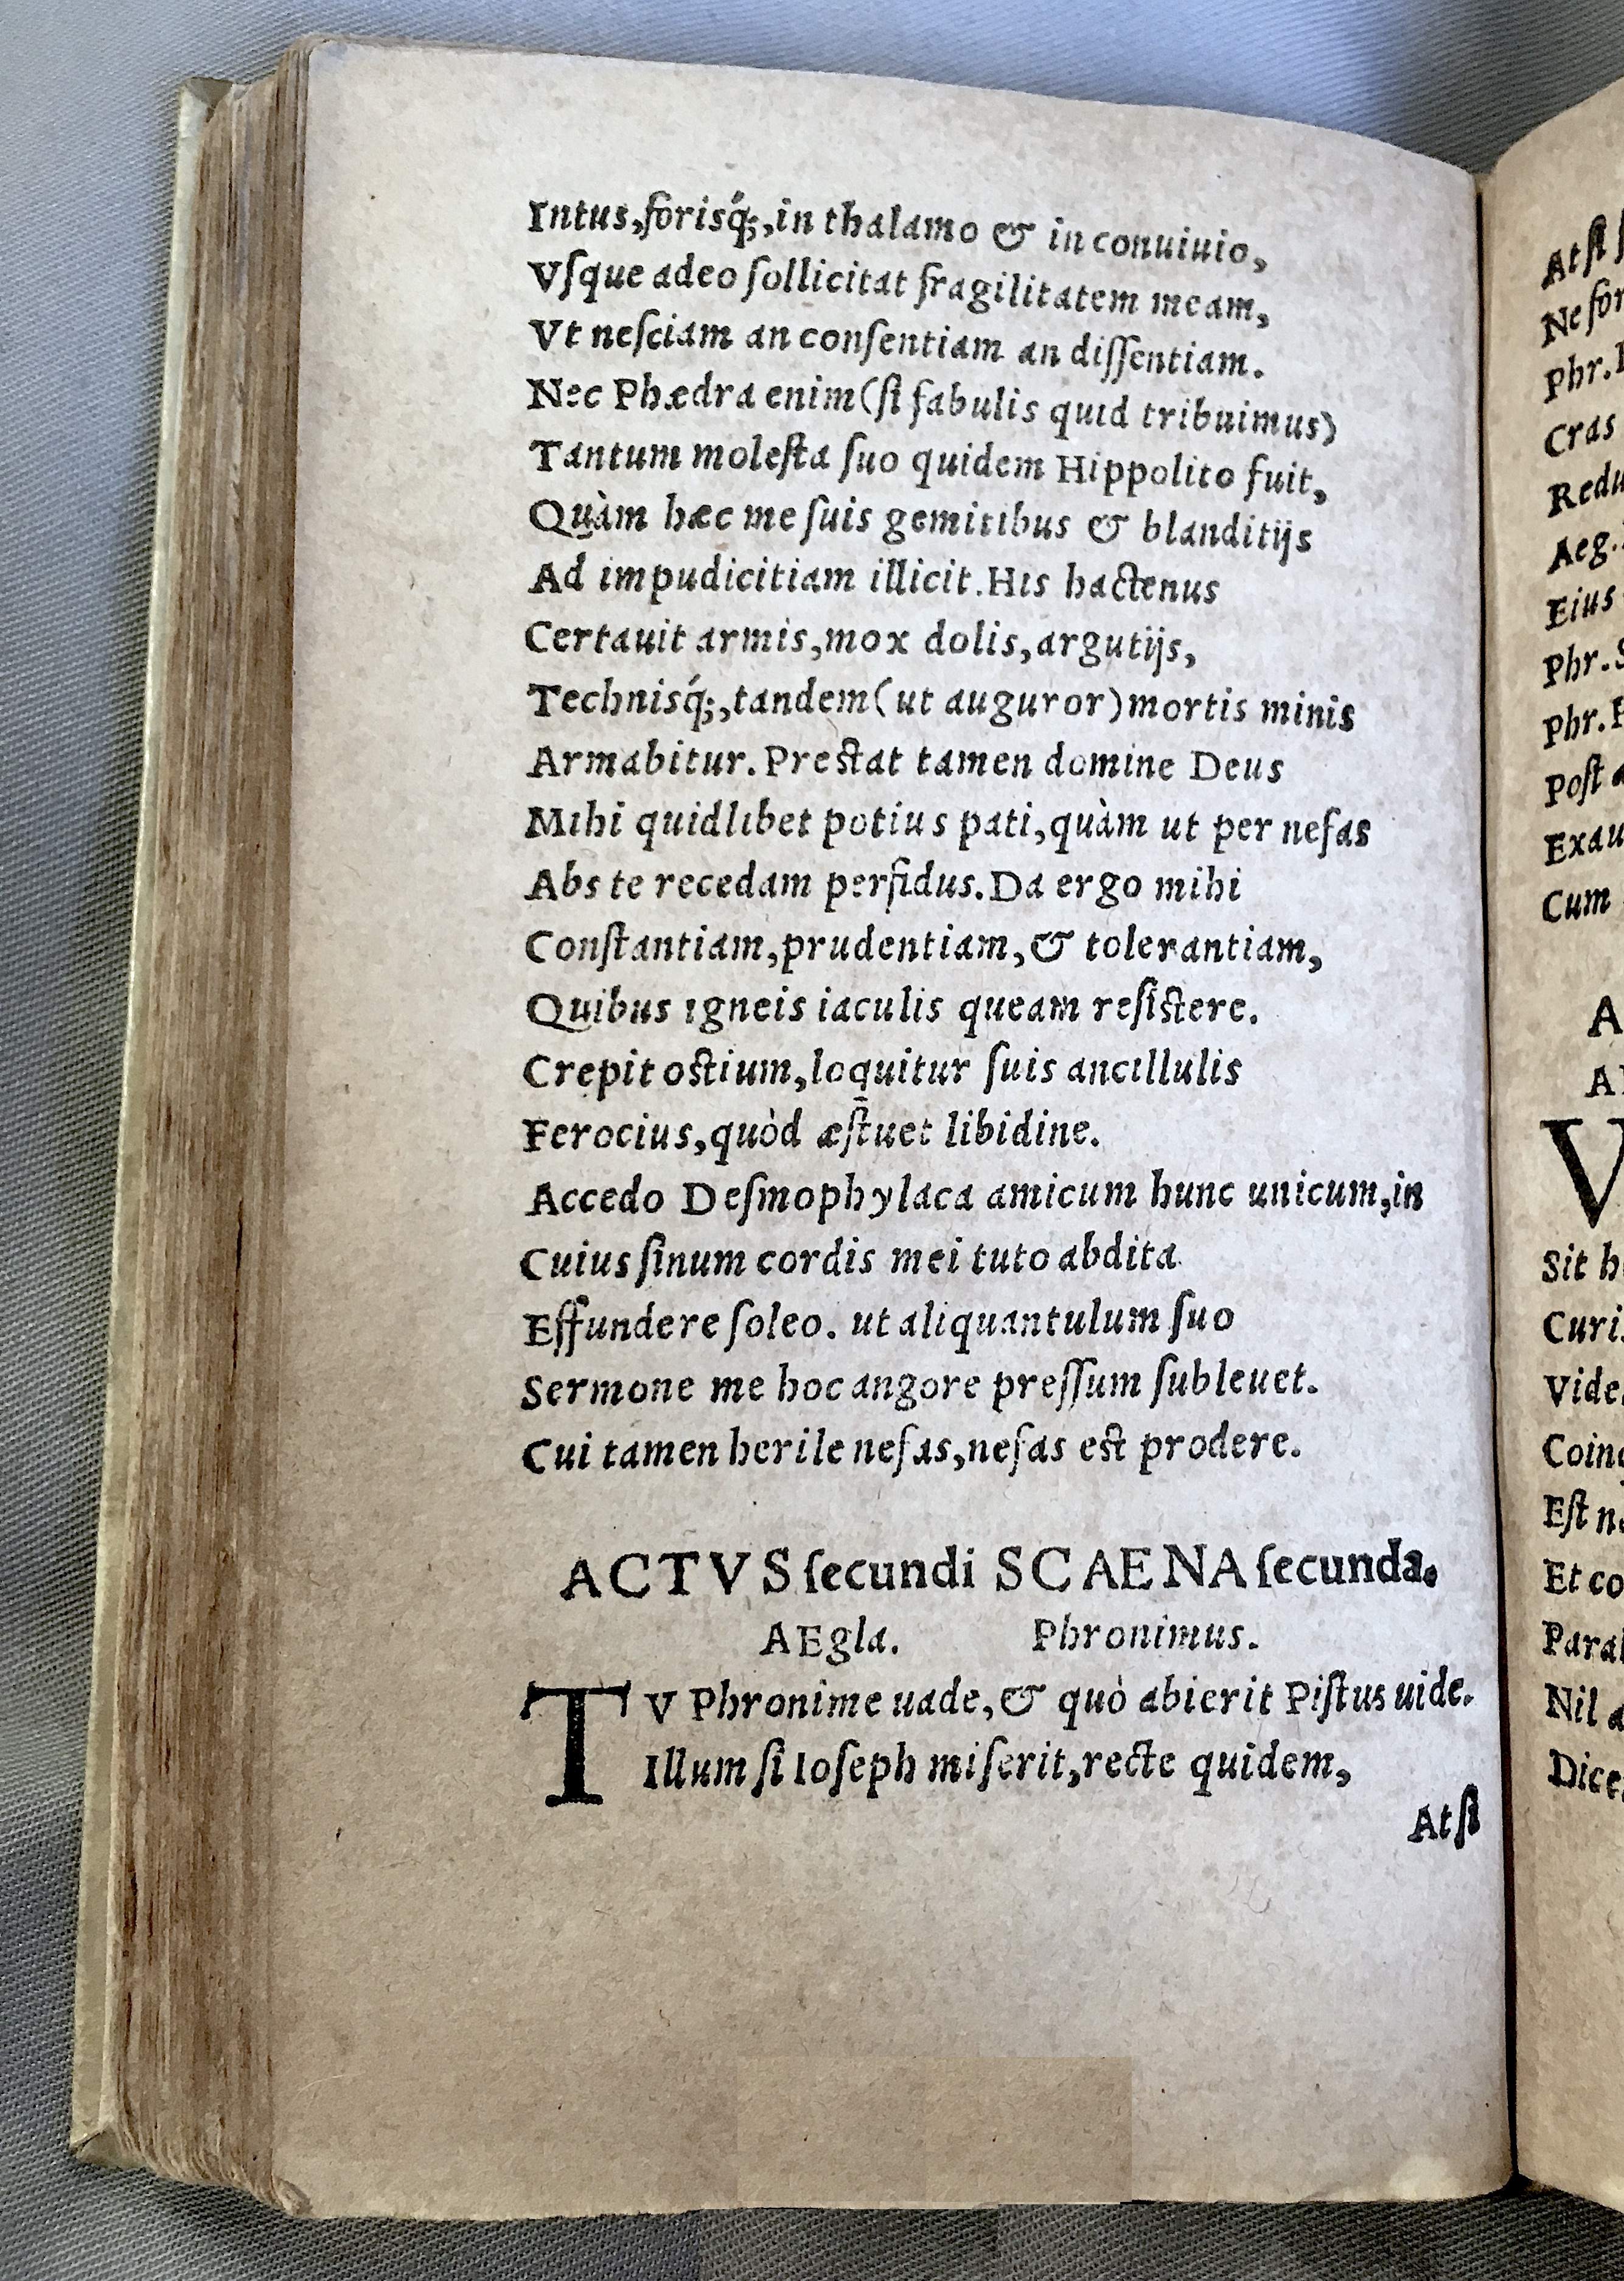 Intus,forisq́;,in thalamo & in conuiuio,
Vſque adeo ſollicitat fragilitatem meam,
Vt neſciam an conſentiam an diſſentiam.
Nec Phædra enim(ſi fabulis quid tribuimus)
Tantum moleſta ſuo quidem Hippolito fuit,
Quàm hæc me ſuis gemitibus & blanditijs
Ad impudicitiam illicit.His hactenus
Certauit armis,mox dolis,argutijs,
Technisq́;,tandem(ut auguror)mortis minis
Armabitur.Preſtat tamen domine Deus
Mihi quidlibet potius pati,quàm ut per nefas
Abs te recedam perfidus.Da ergo mihi
Conſtantiam,prudentiam,& tolerantiam,
Quibus igneis iaculis queam reſiſtere.
Crepit oſtium,loquitur ſuis ancillulis
Ferocius,quòd æſtuet libidine.
Accedo Deſmophylaca amicum hunc unicum,in
Cuius ſinum cordis mei tuto abdita
Effundere ſoleo. ut aliquantulum ſuo
Sermone me hoc angore preſſum ſubleuet.
Cui tamen herile nefas,nefas eſt prodere.
ACTVS ſecundi SCAENA ſecunda.
AEgla. Phronimus.
TV Phronime uade,& quò abierit Piſtus uide.
Illum ſi Ioſeph miſerit,recte quidem,
At ſi
At ſi
Ne
Phr.
Cras
Redu
Aeg.
Eius
Phr.
Phr.
Poſt
Exau
Cum
A
V
Sit
Curi
Vide
Coin
Eſt
Et co
Paral
Nil
Dice